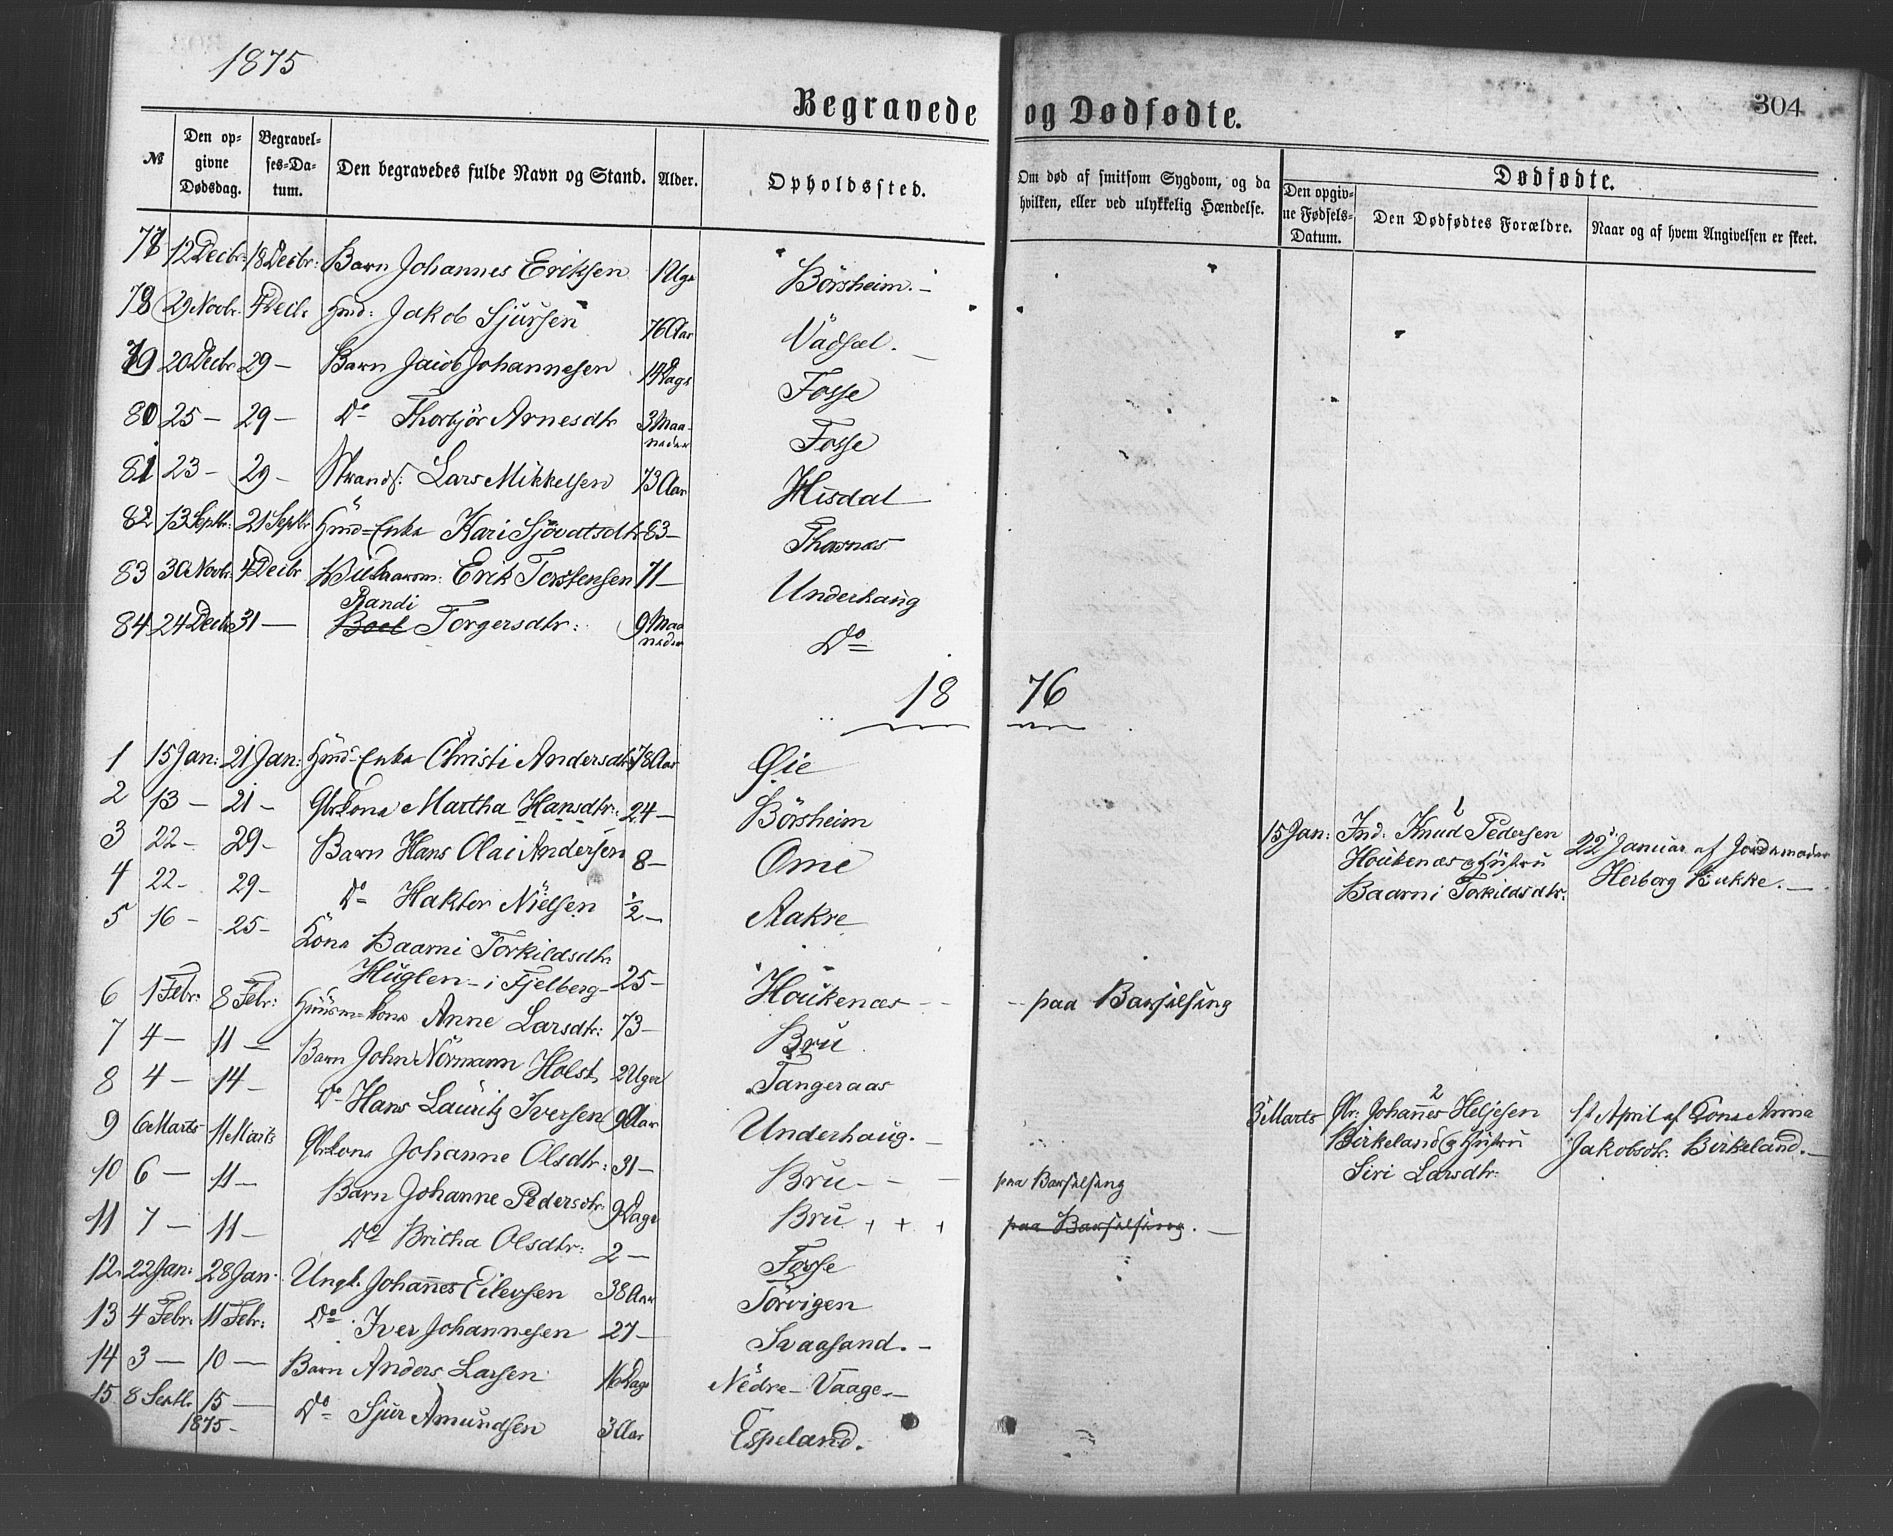 1875
Begravede og Dødfødte.
304
№
Den opgivne Dødsdag.
Begravelses-Datum.
Den begravedes fulde Navn og Stand.
Alder.
Opholdssted.
Om død af smitsom Sygdom, og da hvilken, eller ved ulykkelig Hændelse.
Dødfødte.
Den opgivne Fødsels-Datum.
Den Dødfødtes Forældre.
Naar og af hvem Angivelsen er skeet.
77 12 Decbr: 18 Decbr: Barn Johannes Eriksen 1 Uge Börsheim.-
78 29 Novbr. 4 Decbr Hmd: Jakob Sjursen 76 Aar Vadsel.-
79 20 Decbr 29 - Barn Jacob Johannesen 14 Dage Fosse
80 25 - 29 - Do Thorbjör Arnesdtr 3 Maaneder Fosse
81 23 - 29 - Strands: Lars Mikkelsen 73 Aar Hisdal
82 13 Septbr: 21 Septbr Hmd-Enke Kari Sjövatsdtr 83 - Thornæs
83 30 Novbr. 4 Decbr Erik Torstensen 71 - Underhaug
Randi
84 24 Decbr 31 - Boel Torgersdtr: 9 Maaneder Do
18 76
1 15 Jan: 21 Jan: Hmd-Enke Christi Andersdtr 78 Aar Øie
2 13 - 21 - Gbrkona Martha Hansdtr: 24 - Börsheim
3 22 - 29 - Barn Hans Olai Andersen 8 - Ome
4 22 - 29 - Do Haktor Nielsen ½ - Aakre
5 16 - 25 - Kona Baarni Torkildsdtr
Huglen - i Fjelberg - 25 - Houkenæs - - paa Barselseng
6 1 Febr: 8 Febr: Huusm-kone Anne Larsdtr: 73 - Bru
7 4 - 11 - Barn John Normann Holst 2 Uger Tangeraas
8 4 - 14 - Do Hans Lauritz Iversen 9 Aar Underhaug.-
9 6 Marts 11 Marts Gbrkona Johanne Olsdtr: 31 - Bru - - - paa Barselseng
10 6 - 11 - Barn Johanne Pedersdtr 9 Dage Bru + + + paa Barselseng.-
11 7 - 11 - Do Britha Olsdtr: 2 - Fosse
12. 22 Jan: 28 Jan. Ungk. Johannes Eilevsen 38 Aar Törvigen
13 4 Febr: 11 Febr: Do. Iver Johannesen 27 - Svaasand.-
14 3 - 10 - Barn Anders Larsen 16 Dage Nedre - Vaage.-
15 8 Septbr 15 - Do Sjur Amundsen 3 Aar Espeland.
1875 -
1
15 Jan: Ind: Knud Pedersen
Houkenæs og Hustru
Baarni Torkildsdtr.
22 Januar af Jordemoder
Herborg Bakke.-
2
5 Marts Gbr. Johannes Heljesen
Birkeland og Hustru
Siri Larsdtr.
1st April af Kona Anna
Jakobsdtr. Birkeland.-